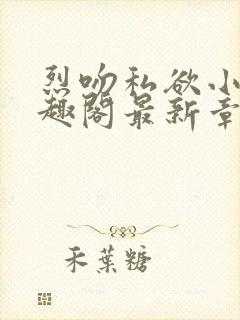 烈吻私欲小
趣阁最新章
禾葉糖